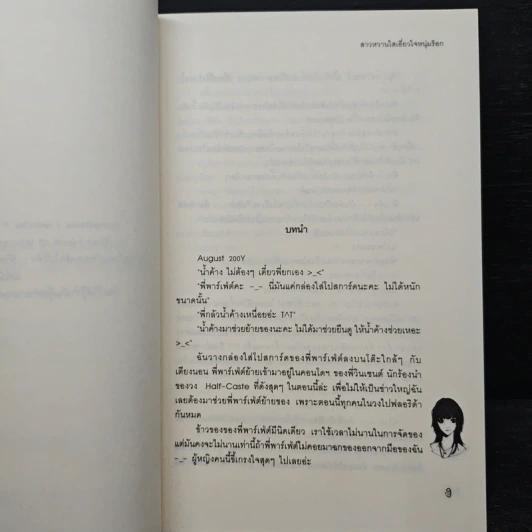 สาวหวานใสเอี่ยวใจหนุ่มร็อก
บทนำ
August 200Y
"น้ำค้าง ไม่ต้องๆ เดี๋ยวพี่ยกเอง >_<"
"พี่พาร์เฟ่ต์คะ -_- นี่มันแค่กล่องใส่โปสการ์ดนะคะ ไม่ได้หนัก
ขนาดนั้น"
"พี่กลัวน้ำค้างเหนื่อยอ่ะ T^T"
"น้ำค้างมาช่วยย้ายของนะคะ ไม่ได้มาช่วยยืนดู ให้น้ำค้างช่วยเหอะ
>_<"
ฉันวางกล่องใส่โปสการ์ดของพี่พาร์เฟ่ต์ลงบนโต๊ะใกล้ๆ กับ
เตียงนอน พี่พาร์เฟ่ต์ย้ายเข้ามาอยู่ในคอนโดฯ ของพี่วินเซนต์ นักร้องนำ
ของวง Half-Caste ที่ดังสุดๆ ในตอนนี้ล่ะ เพื่อไม่ให้เป็นข่าวใหญ่ฉัน
เลยต้องมาช่วยพี่พาร์เฟ่ต์ย้ายของ เพราะตอนนี้ทุกคนในวงไปฟลอริด้า
กันหมด
ข้าวของของพี่พาร์เฟ่ต์มีนิดเดียว เราใช้เวลาไม่นานในการจัดของ
แต่มันคงจะไม่นานเท่านี้ถ้าพี่พาร์เฟ่ต์ไม่คอยมาฉกของออกจากมือของฉัน
-_- ผู้หญิงคนนี้ขี้เกรงใจสุดๆ ไปเลยอ่ะ